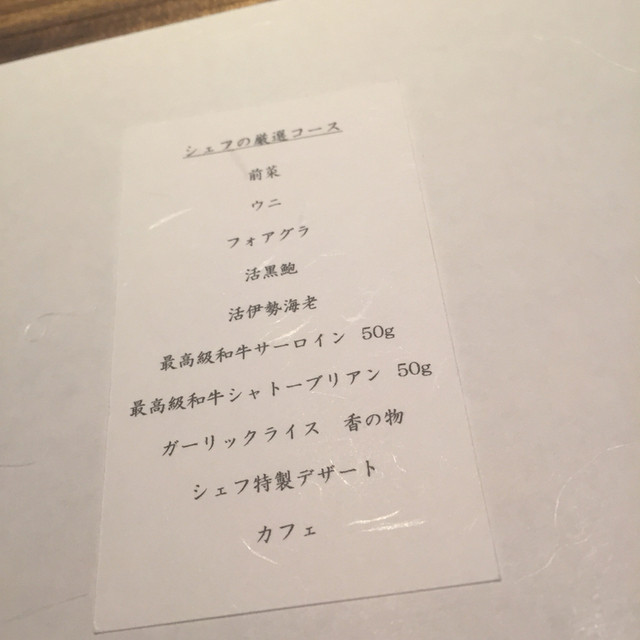 シェフの厳選コース
前菜
ウニ
フォアグラ
活黒鮑
活伊勢海老
最高級和牛サーロイン 50g
最高級和牛シャトーブリアン 50g
ガーリックライス　香の物
シェフ特製デザート
カフェ